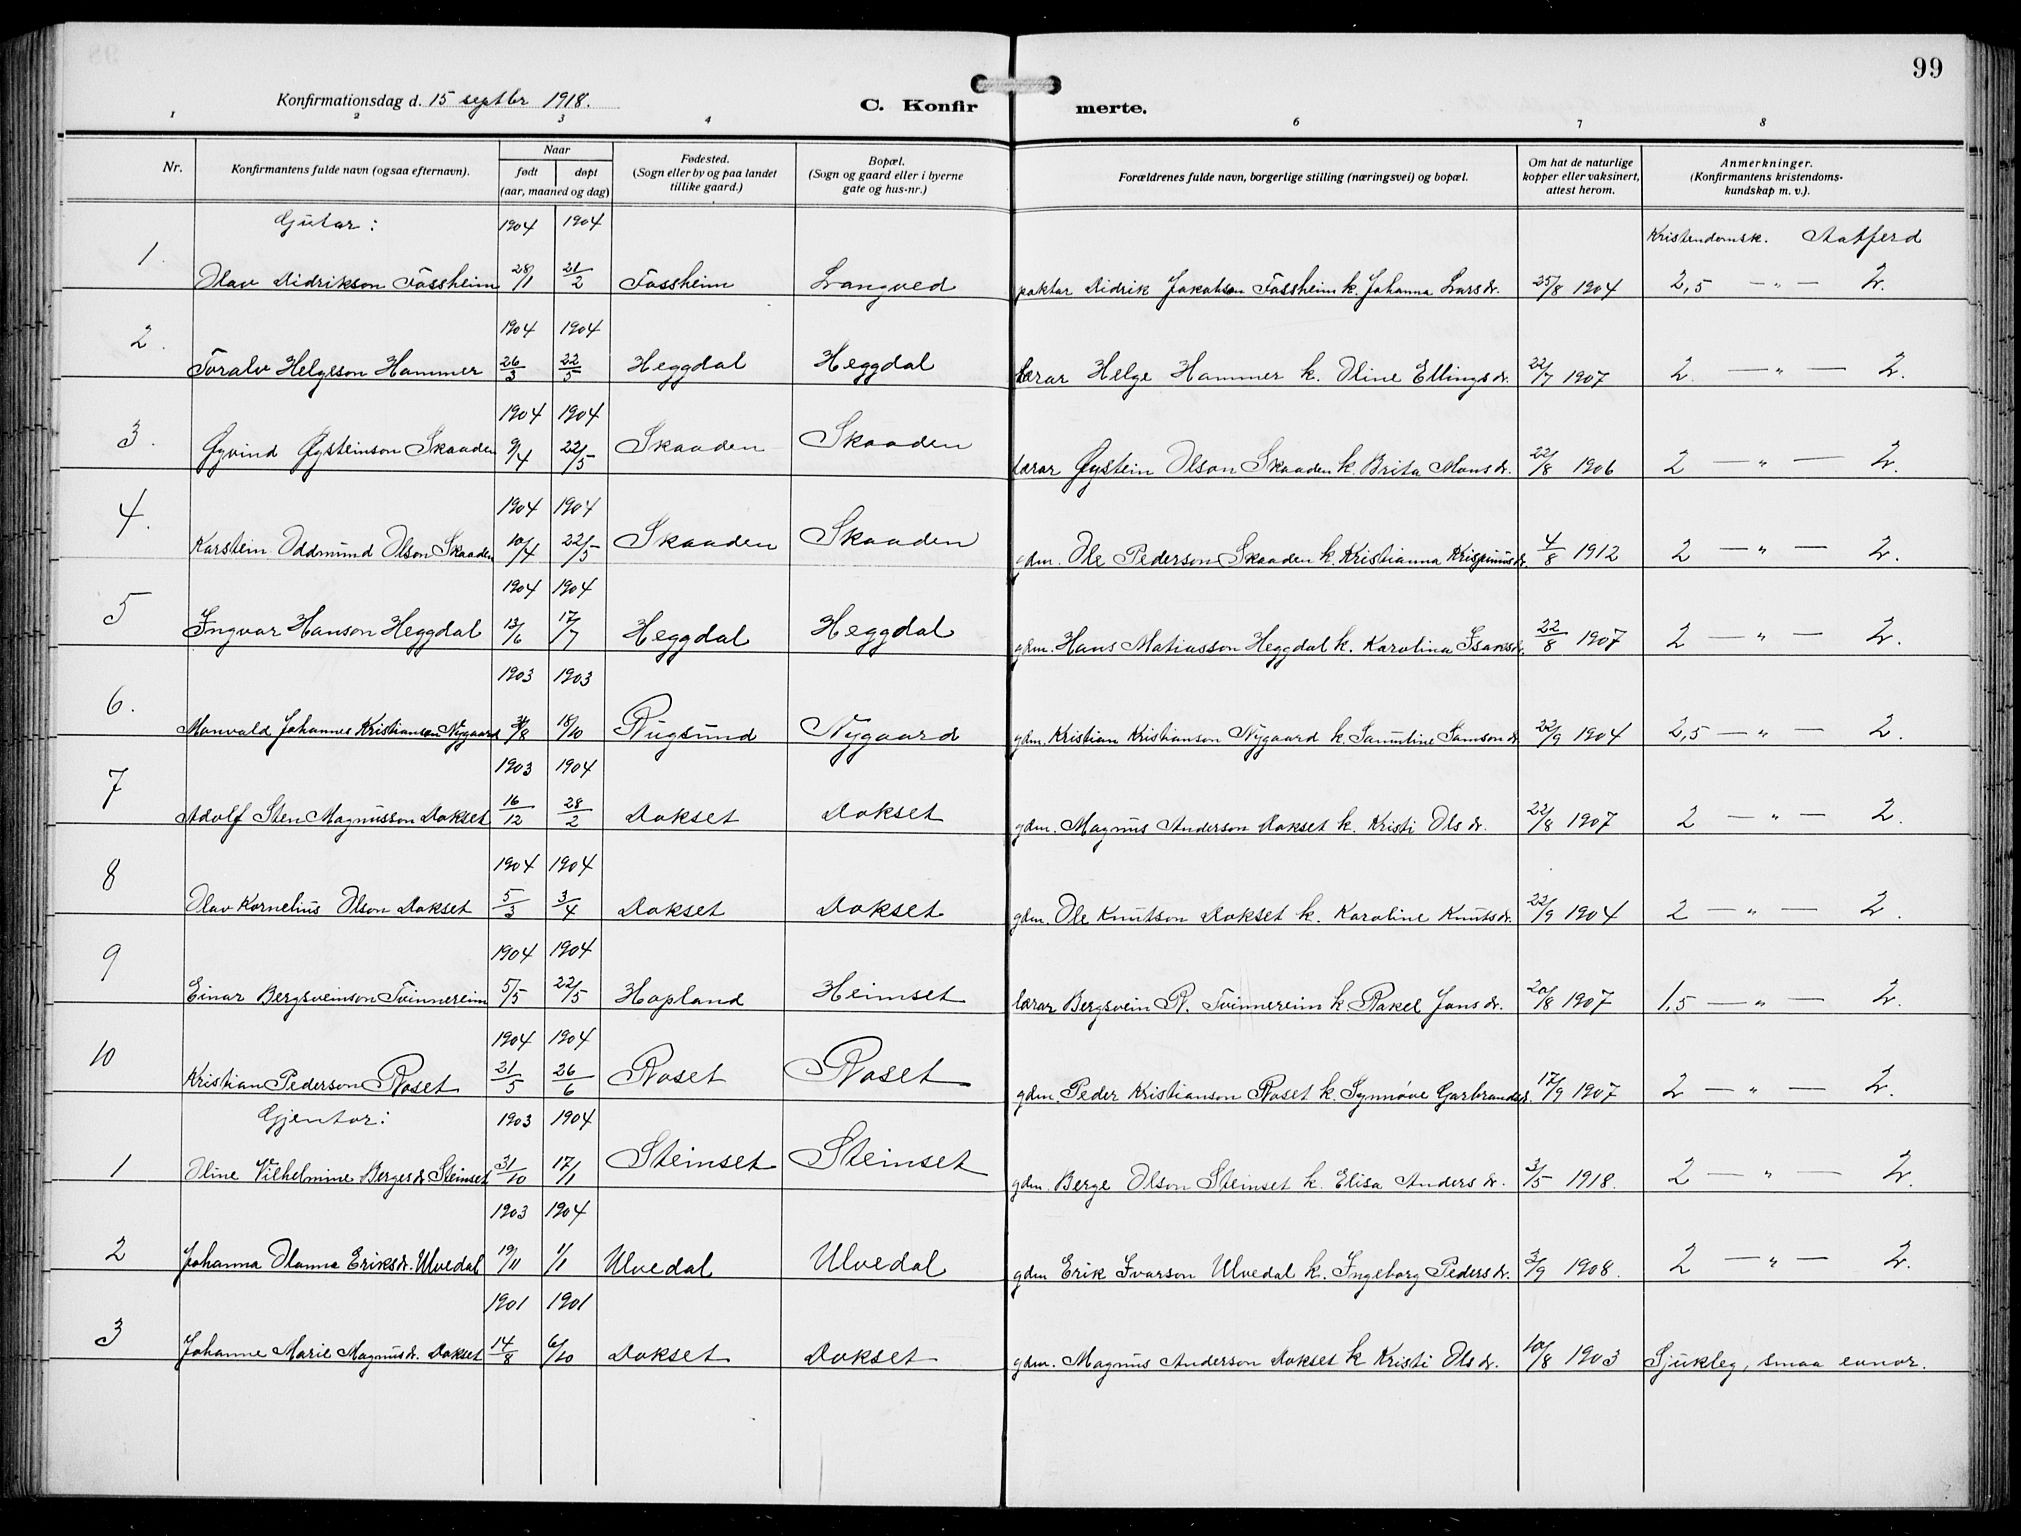 99
Konfirmationsdag d. 15 septbr 1918.
C. Konfirmerte.
1 2 3 4 6 7 8
Nr. Konfirmantens fulde navn (ogsaa efternavn). Naar født døpt (aar, maaned og dag) Fødested. (Sogn eller by og paa landet tillike gaard.) Bopæl. (Sogn og gaard eller i byerne gate og hus-nr.) Forældrenes fulde navn, borgerlige stilling (næringsvei) og bopæl. Om hat de naturlige kopper eller vaksinert, attest herom. Anmerkninger. (Konfirmantens kristendomskundskap m. v.).
Gutar: 1904 1904 Kristendomsk. Aatferd
1. Olav Didrikson Fossheim 28/1 21/2 Fossheim Langved paktar Didrik Jakobson Fossheim k. Johanna Larsdr. 25/8 1904 2,5 — „ — 2.
1904 1904
2. Toralv Helgeson Hammer 26/3 22/5 Heggdal Heggdal lærar Helge Hammer k. Oline Ellingsdr. 22/7 1907 2 — „ — 2.
1904 1904
3. Øyvind Øysteinson Skaaden 9/4 22/5 Skaaden Skaaden lærar Øystein Olson Skaaden k. Brita Monsdr. 22/8 1906 2 — „ — 2.
1904 1904
4. Karstein Oddmund Olson Skaaden 10/4 22/5 Skaaden Skaaden gdm. Ole Pederson Skaaden k. Kristianna 4/8 1912 2 — „ — 2.
1904 1904
5 Ingvar Hanson Heggdal 13/6 17/7 Heggdal Heggdal gdm. Hans Matiasson Heggdal k. Karolina Isaksdr. 22/8 1907 2 — „ — 2.
1903 1903
6. Manvald Johannes Kristianson Nygaard 18/10 Rugsund Nygaard gdm. Kristian Kristianson Nygaard k. Samuline Samsondr. 22/9 1904 2,5 — „ — 2.
1903 1904
7 Adolf Sten Magnusson Dokset 16/12 28/2 Dokset Dokset gdm. Magnus Anderson Dokset k. Kristi Olsdr. 22/8 1907 2 — „ — 2.
1904 1904
8 Olav Kornelius Olson Dokset 5/3 3/4 Dokset Dokset gdm. Ole Knutson Dokset k. Karoline Knutsdr. 22/9 1904 2 — „ — 2.
1904 1904
9 Einar Bergsveinson Tvinnereim 5/5 22/5 Hopland Heimset lærar Bergsvein R. Tvinnereim k. Rakel Jonsdr. 20/8 1907 1,5 — „ — 2.
1904 1904
10 Kristian Pederson Roset 21/5 26/6 Roset Roset gdm. Peder Kristianson Roset k. Synnøve Garbrandsdr. 17/9 1907 2 — „ — 2.
Gjentor: 1903 1904
1 Oline Vilhelmine Bergesdr. Steinset 31/10 17/1 Steinset Steinset gdm. Berge Olson Steinset k. Elisa Andersdr. 3/5 1918. 2 — „ — 2.
1903 1904
2 Johanna Olanna Eriksdr. Ulvedal 19/11 1/1 Ulvedal Ulvedal gdm Erik Ivarson Ulvedal k. Ingeborg Pedersdr. 3/9 1908. 2 — „ — 2.
1901 1901
3 Johanne Marie Magnusdr. Dokset 14/8 6/10 Dokset Dokset gdm. Magnus Anderson Dokset k Kristi Olsdr. 10/8 1903 Sjukleg, smaa evnor.